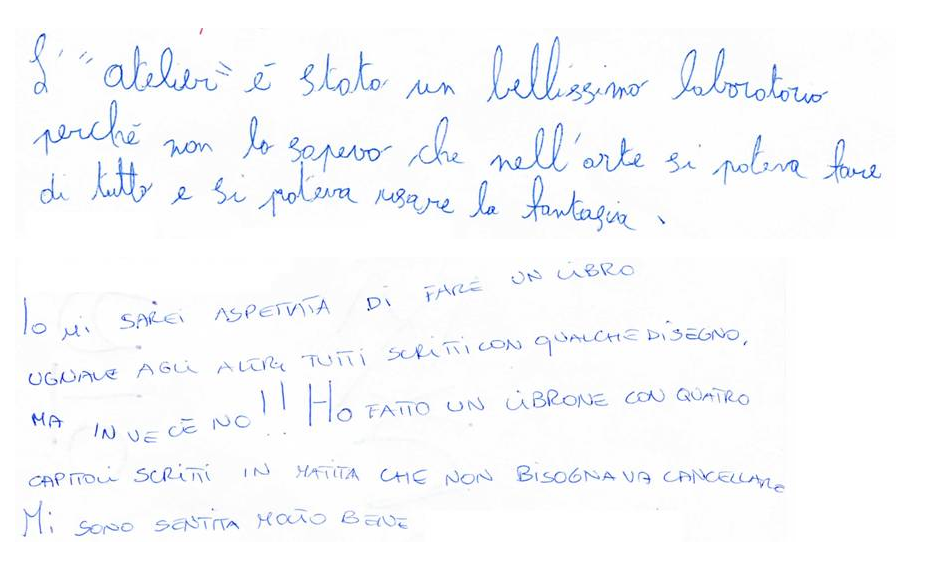 L' "atelier" è stato un bellissimo laboratorio
perché non lo sapevo che nell'arte si poteva fare
di tutto e si poteva usare la fantasia.
Io mi sarei aspettata di fare un libro
uguale agli altri, tutti scritti con qualche disegno,
ma invece no!! Ho fatto un librone con quatro
capitoli scritti in matita che non bisognava cancellare
Mi sono sentita molto bene